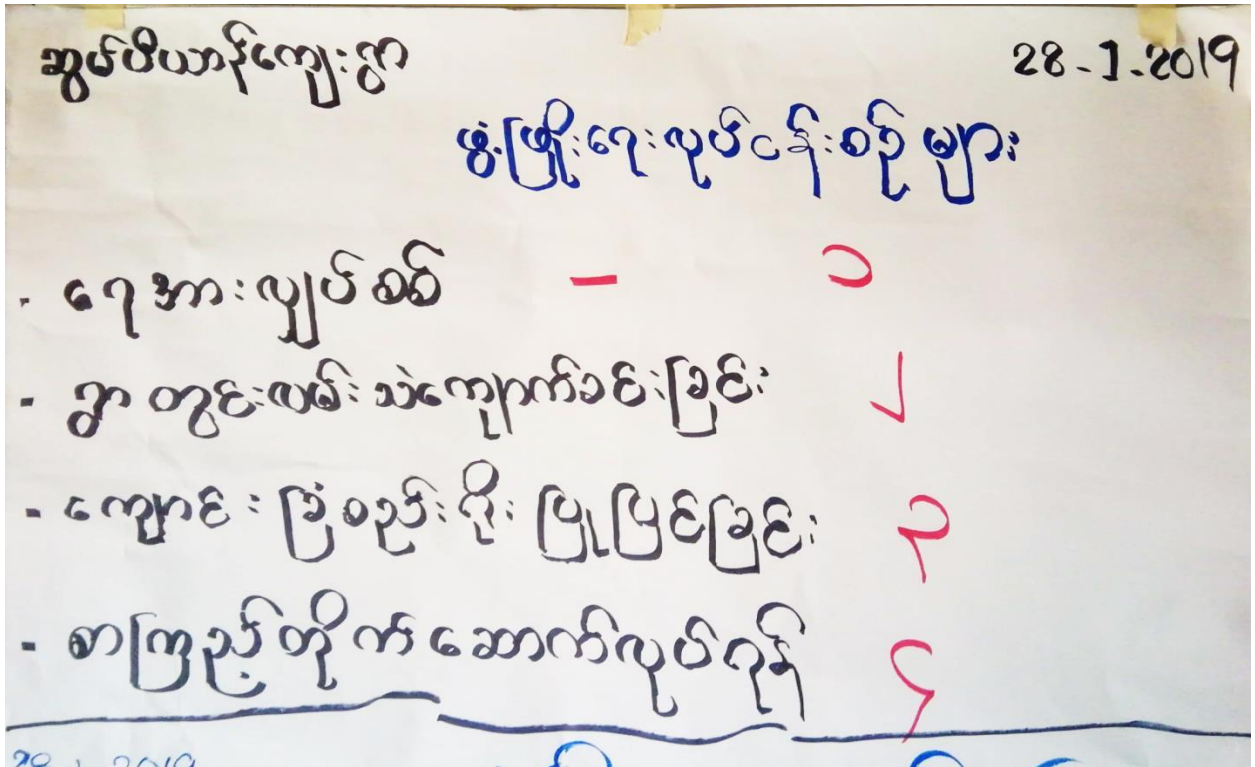 ဆွမ်ပီယာန်ကျေးရွာ 28-1-2019
ဖွံ့ဖြိုးရေးလုပ်ငန်းစဉ်များ
- ရေအားလျှပ်စစ် - ၁
- ရွာတွင်းလမ်းသဲကျောက်ခင်းခြင်း ၂
- ကျောင်းခြံစည်းရိုး ပြုပြင်ခြင်း ၃
- စာကြည့်တိုက်ဆောက်လုပ်ရန် ၄